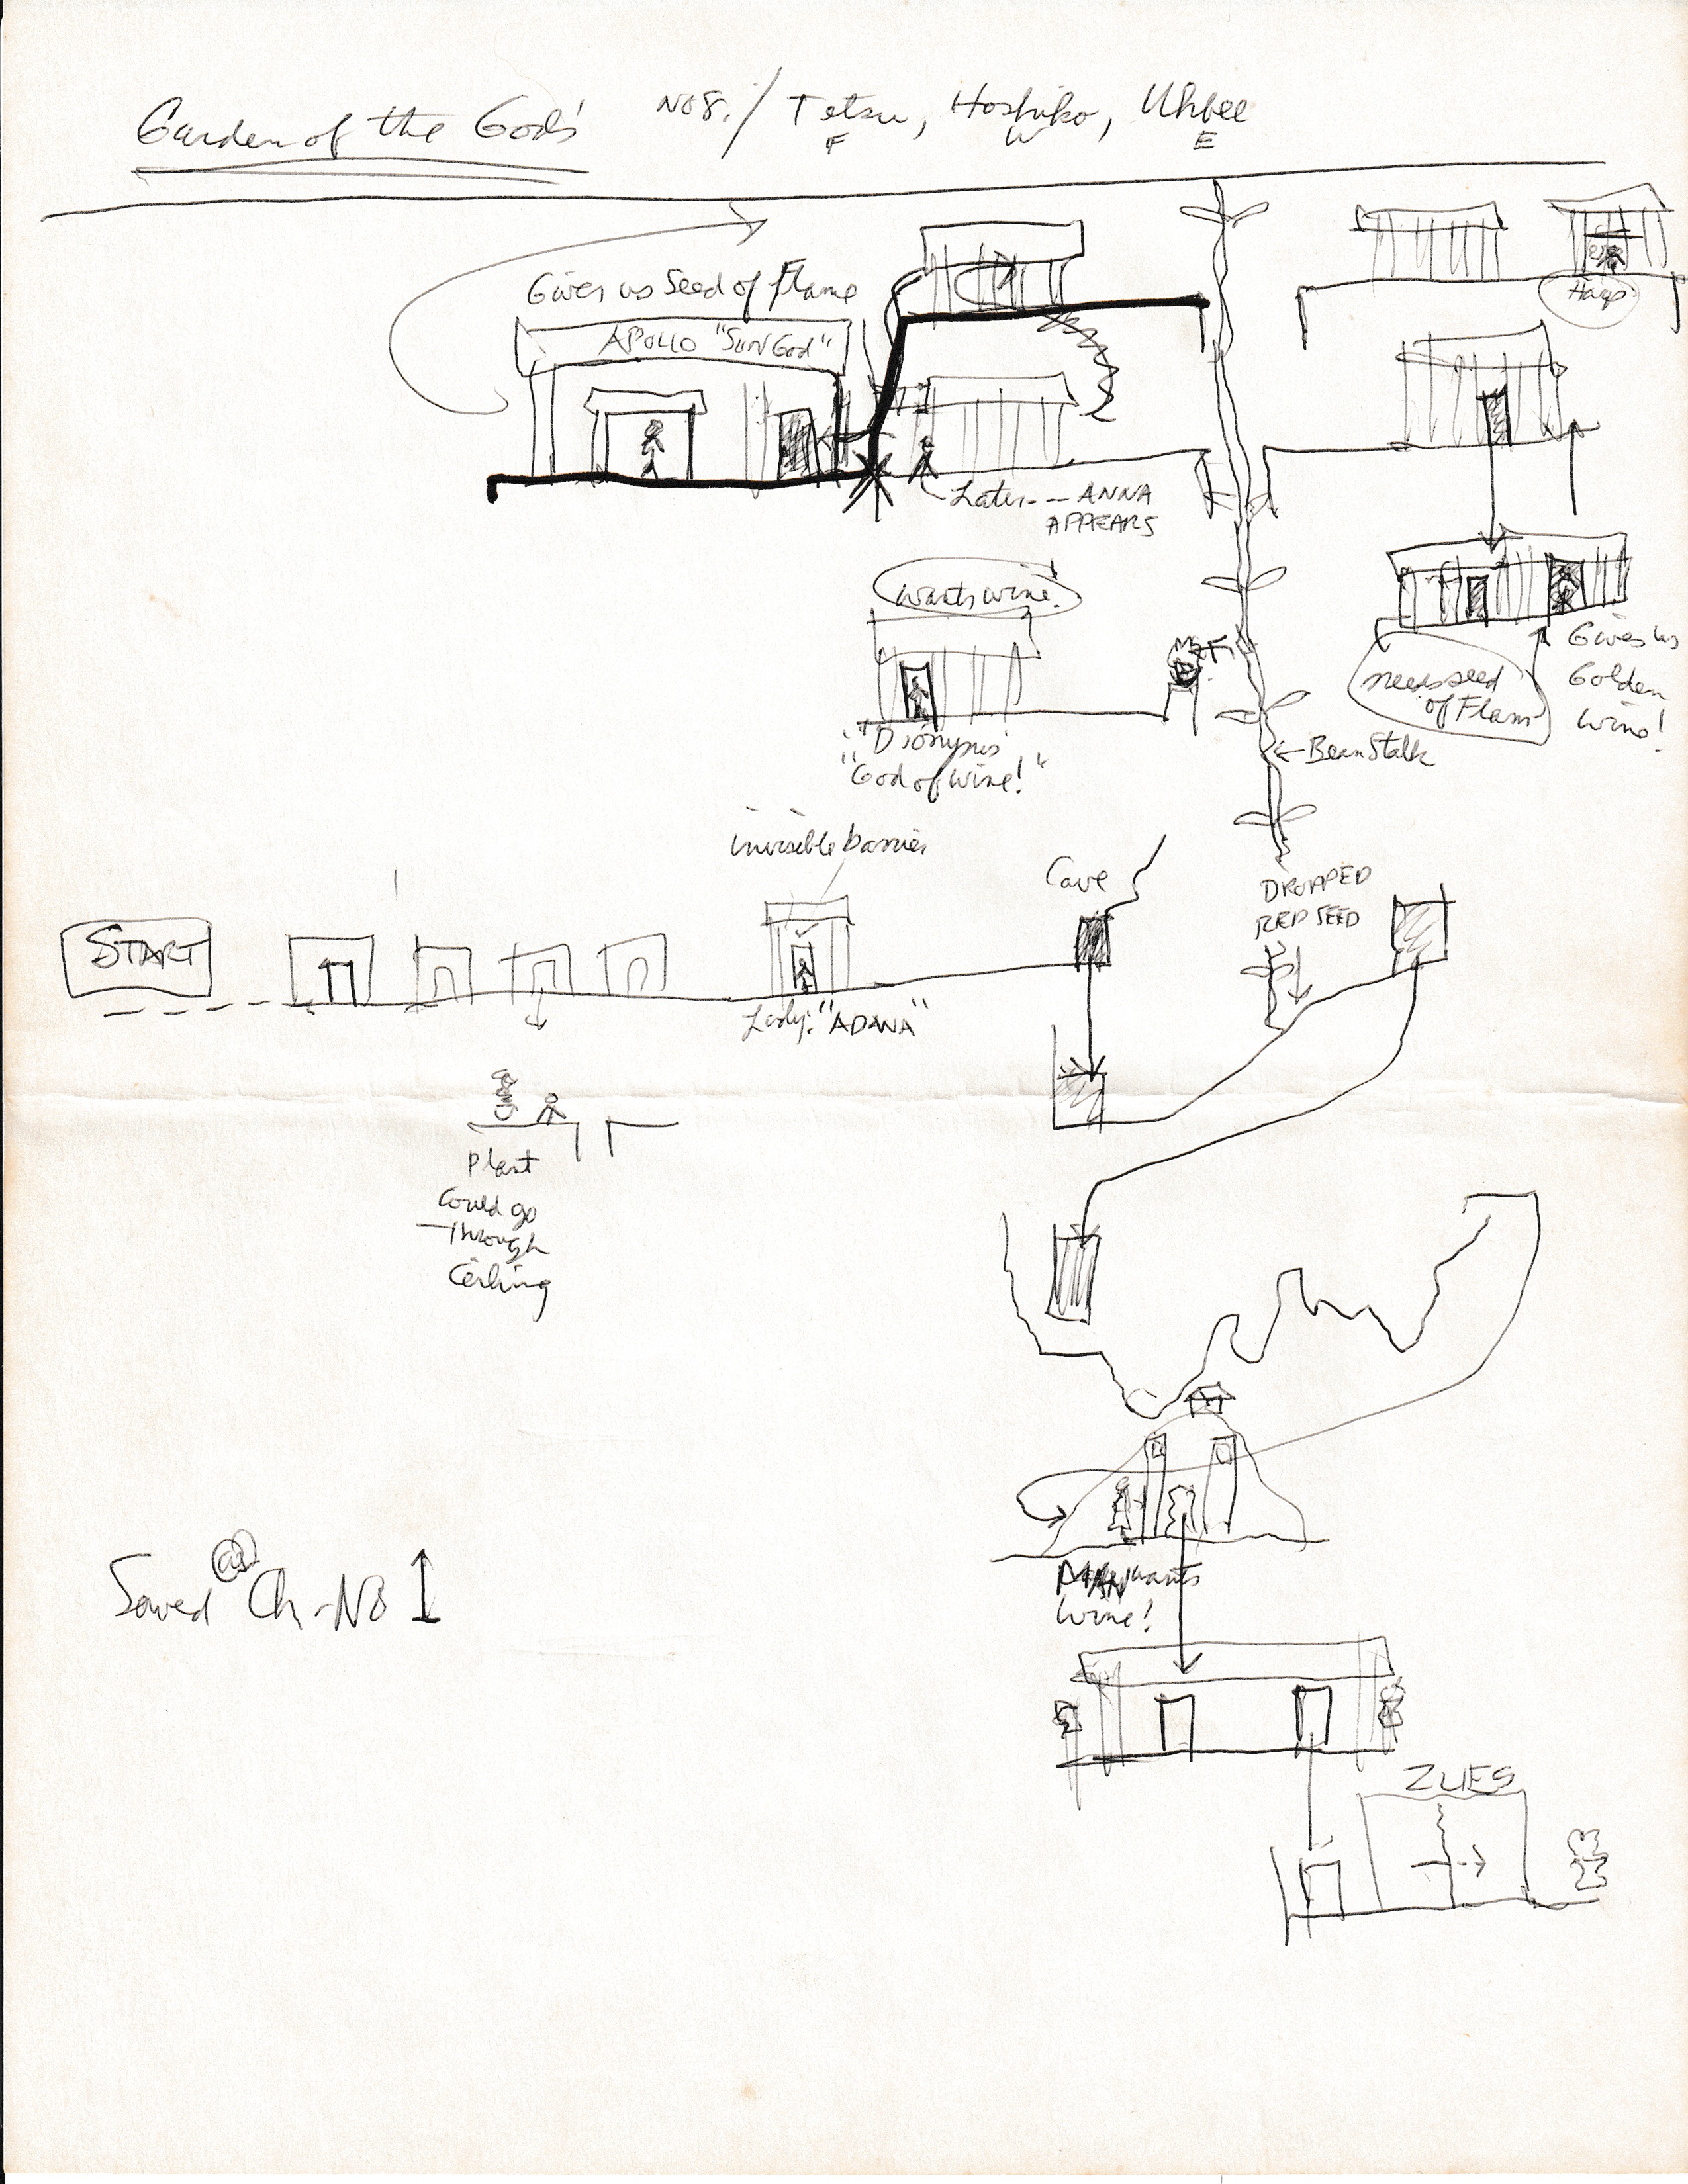 Garden of the Gods
No 8. / Tetsu, Hoshiko, Uhbee
F W E
Gives us Seed of Flame
APOLLO "SUN God"
Harp
Later -- ANNA
APPEARS
wants wine!
Gives us
Golden
wine!
needs seed
of Flame
"Dionysus"
"God of wine!"
← BeanStalk
invisible barrier
Cave
DROPPED
RED SEED
START
Lady: "ADANA"
Plant
Could go
Through
Ceiling
Saved @ Ch-No 1
MAN wants
wine!
ZUES